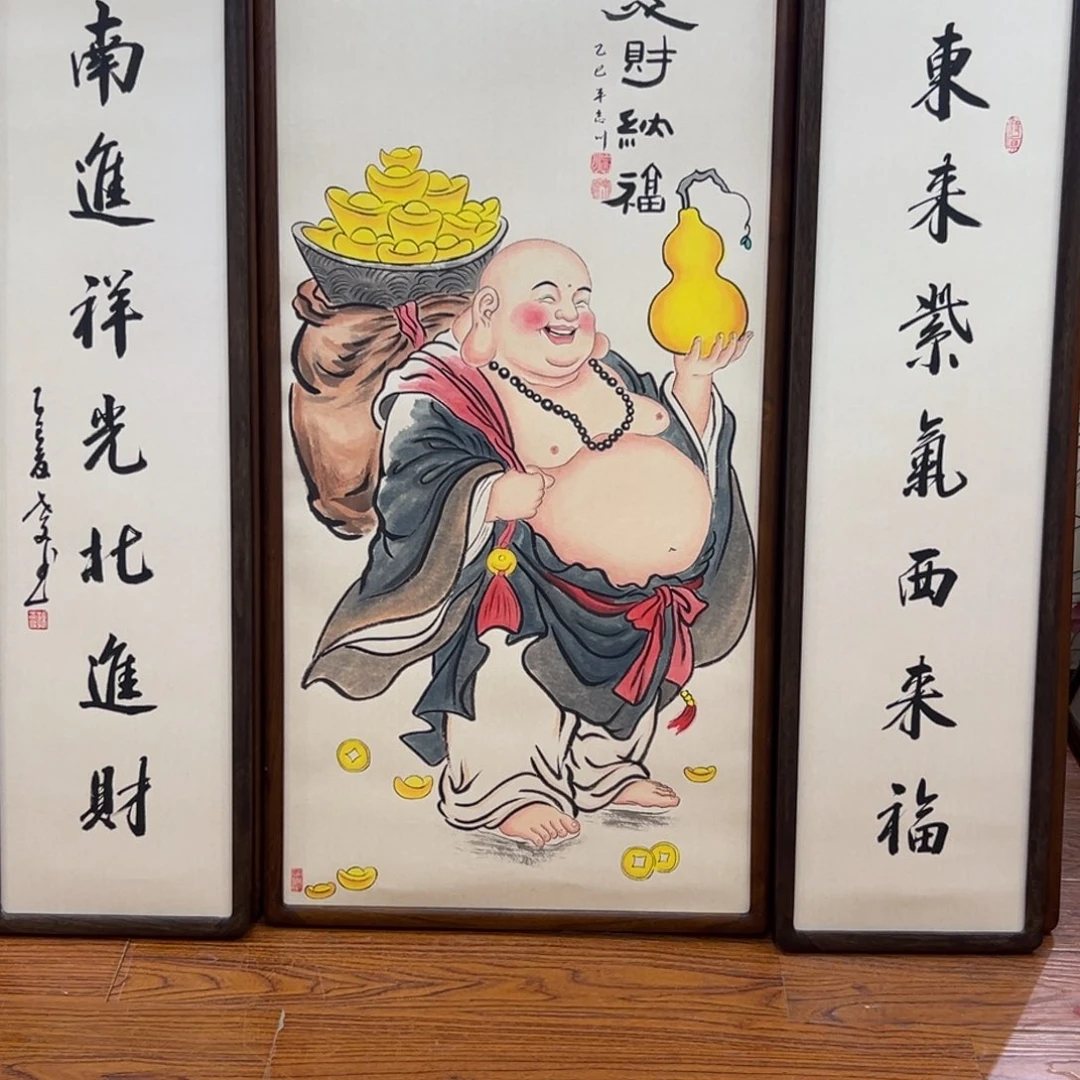 東来紫氣西来福
財納福
乙巳年志川
南進祥光北進財